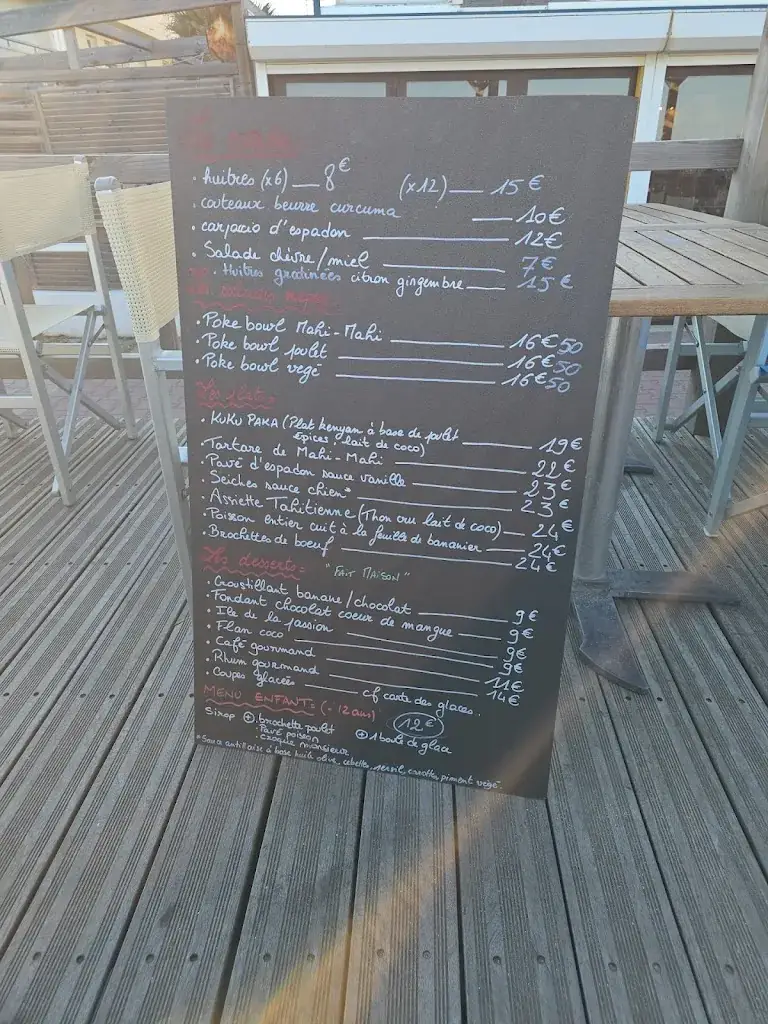 . huitres (x6) — 8€ (x12) — 15€
. couteaux beurre curcuma — 10€
. carpacio d'espadon — 12€
. Salade chèvre/miel — 7€
. Huitres gratinées citron gingembre — 15€
. Poke bowl Mahi-Mahi — 16€50
. Poke bowl poulet — 16€50
. Poke bowl vegé — 16€50
Les plats:
. KUKU PAKA (Plat kenyan à base de poulet — 19€
épices, lait de coco)
Tartare de Mahi-Mahi — 22€
. Pavé d'espadon sauce vanille — 23€
. Seiches sauce chien* — 23€
. Assiette Tahitienne (Thon cru lait de coco) — 24€
. Poisson entier cuit à la feuille de bananier — 24€
. Brochettes de boeuf — 24€
Les desserts = "FAIT MAISON"
. Croustillant banane/chocolat — 9€
. Fondant chocolat coeur de mangue — 9€
. Ile de la passion — 9€
. Flan coco — 9€
. Café gourmand — 11€
. Rhum gourmand — 14€
. Coupes glacées — cf carte des glaces.
MENU ENFANT = (- 12 ans) 12€
Sirop + . brochette poulet
. Pavé poisson + 1 boule de glace
. croque monsieur
* Sauce antillaise à base huile olive, cebettes, persil, carottes, piment végé.